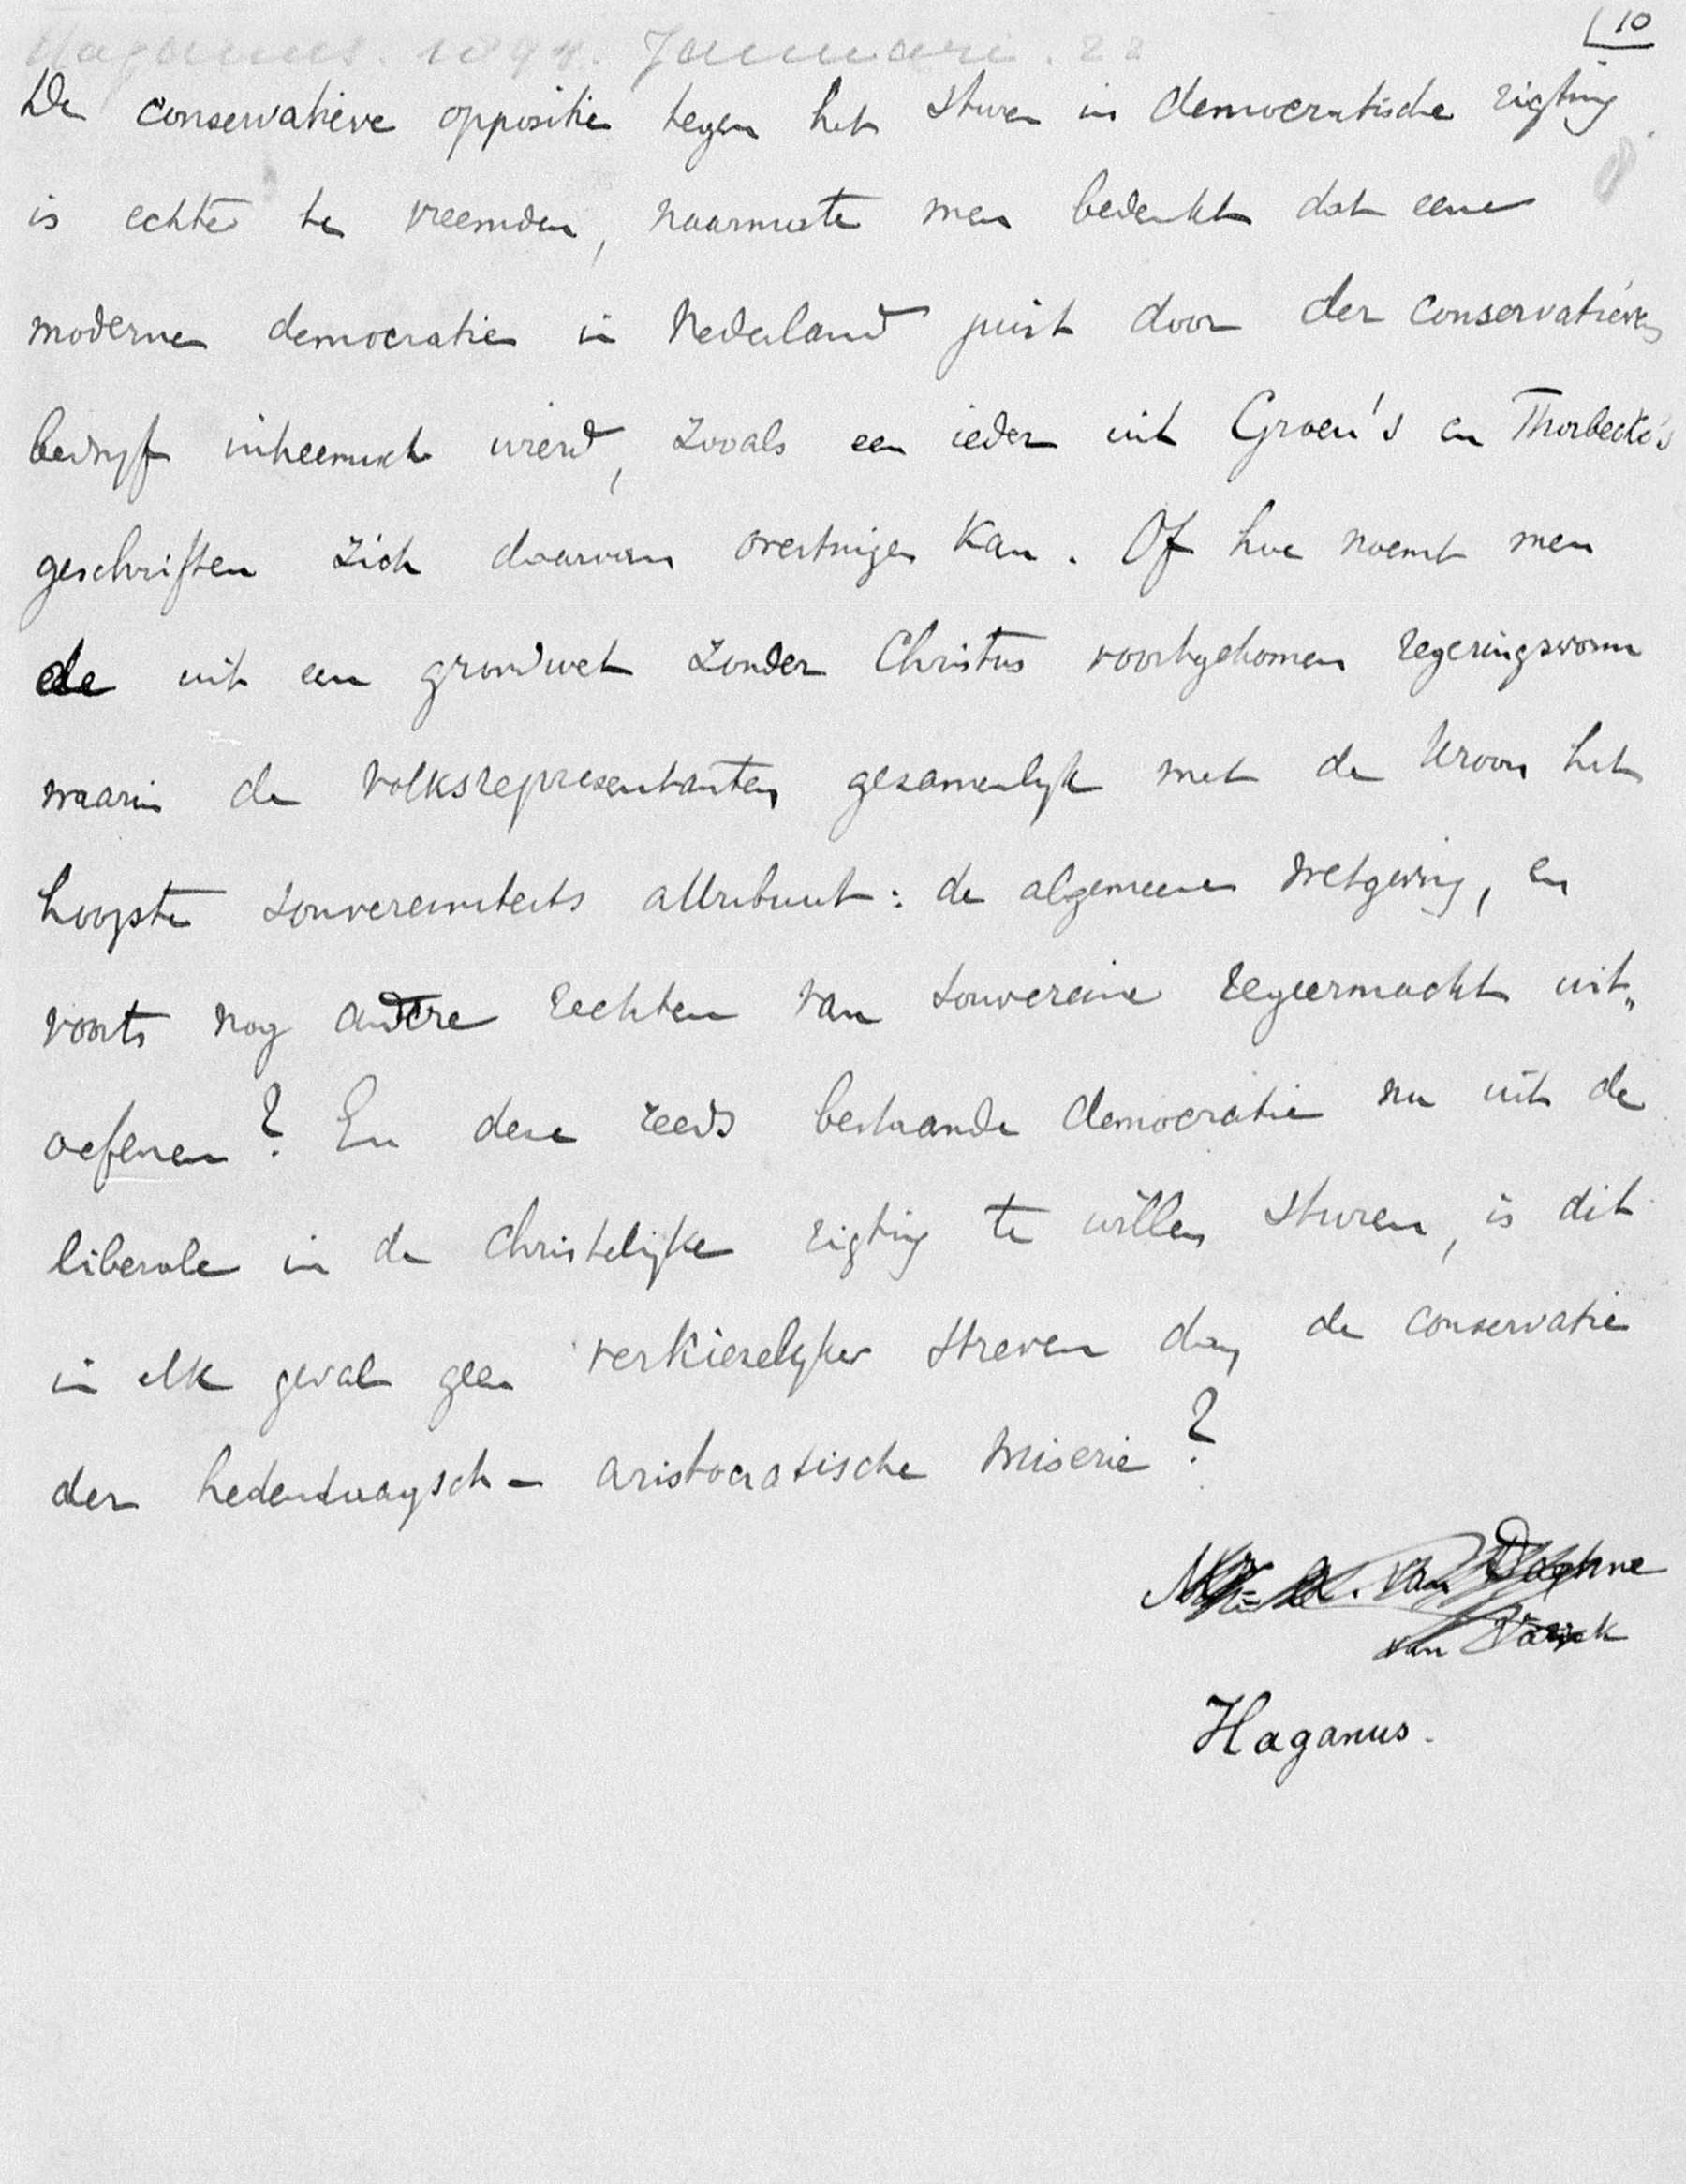 10
Haganus. 1894. Januari. 22
De conservatieve oppositie tegen het sturen in democratische rigting
is echter te vreemder, naarmate men bedenkt dat eene
moderne democratie in Nederland juist door der conservatieven
bedryf inheemsch wierd, zooals een ieder uit Groen's en Thorbecke's
geschriften zich daarvan overtuigen kan. Of hoe noemt men
de uit een grondwet zonder Christus voortgekomen regeringsvorm
waarin de volksrepresentanten gezamenlyk met de Kroon het
hoogste souvereiniteits attribuut: de algemeene wetgeving, en
voorts nog andere rechten van souvereine regeermacht uit„
oefenen? En deze reeds bestaande democratie nu uit de
liberale in de christelyke rigting te willen sturen, is dit
in elk geval geen verkieselyker streven dan de conservatie
der hedendaagsch-aristocratische miserie?
van
van
Haganus.